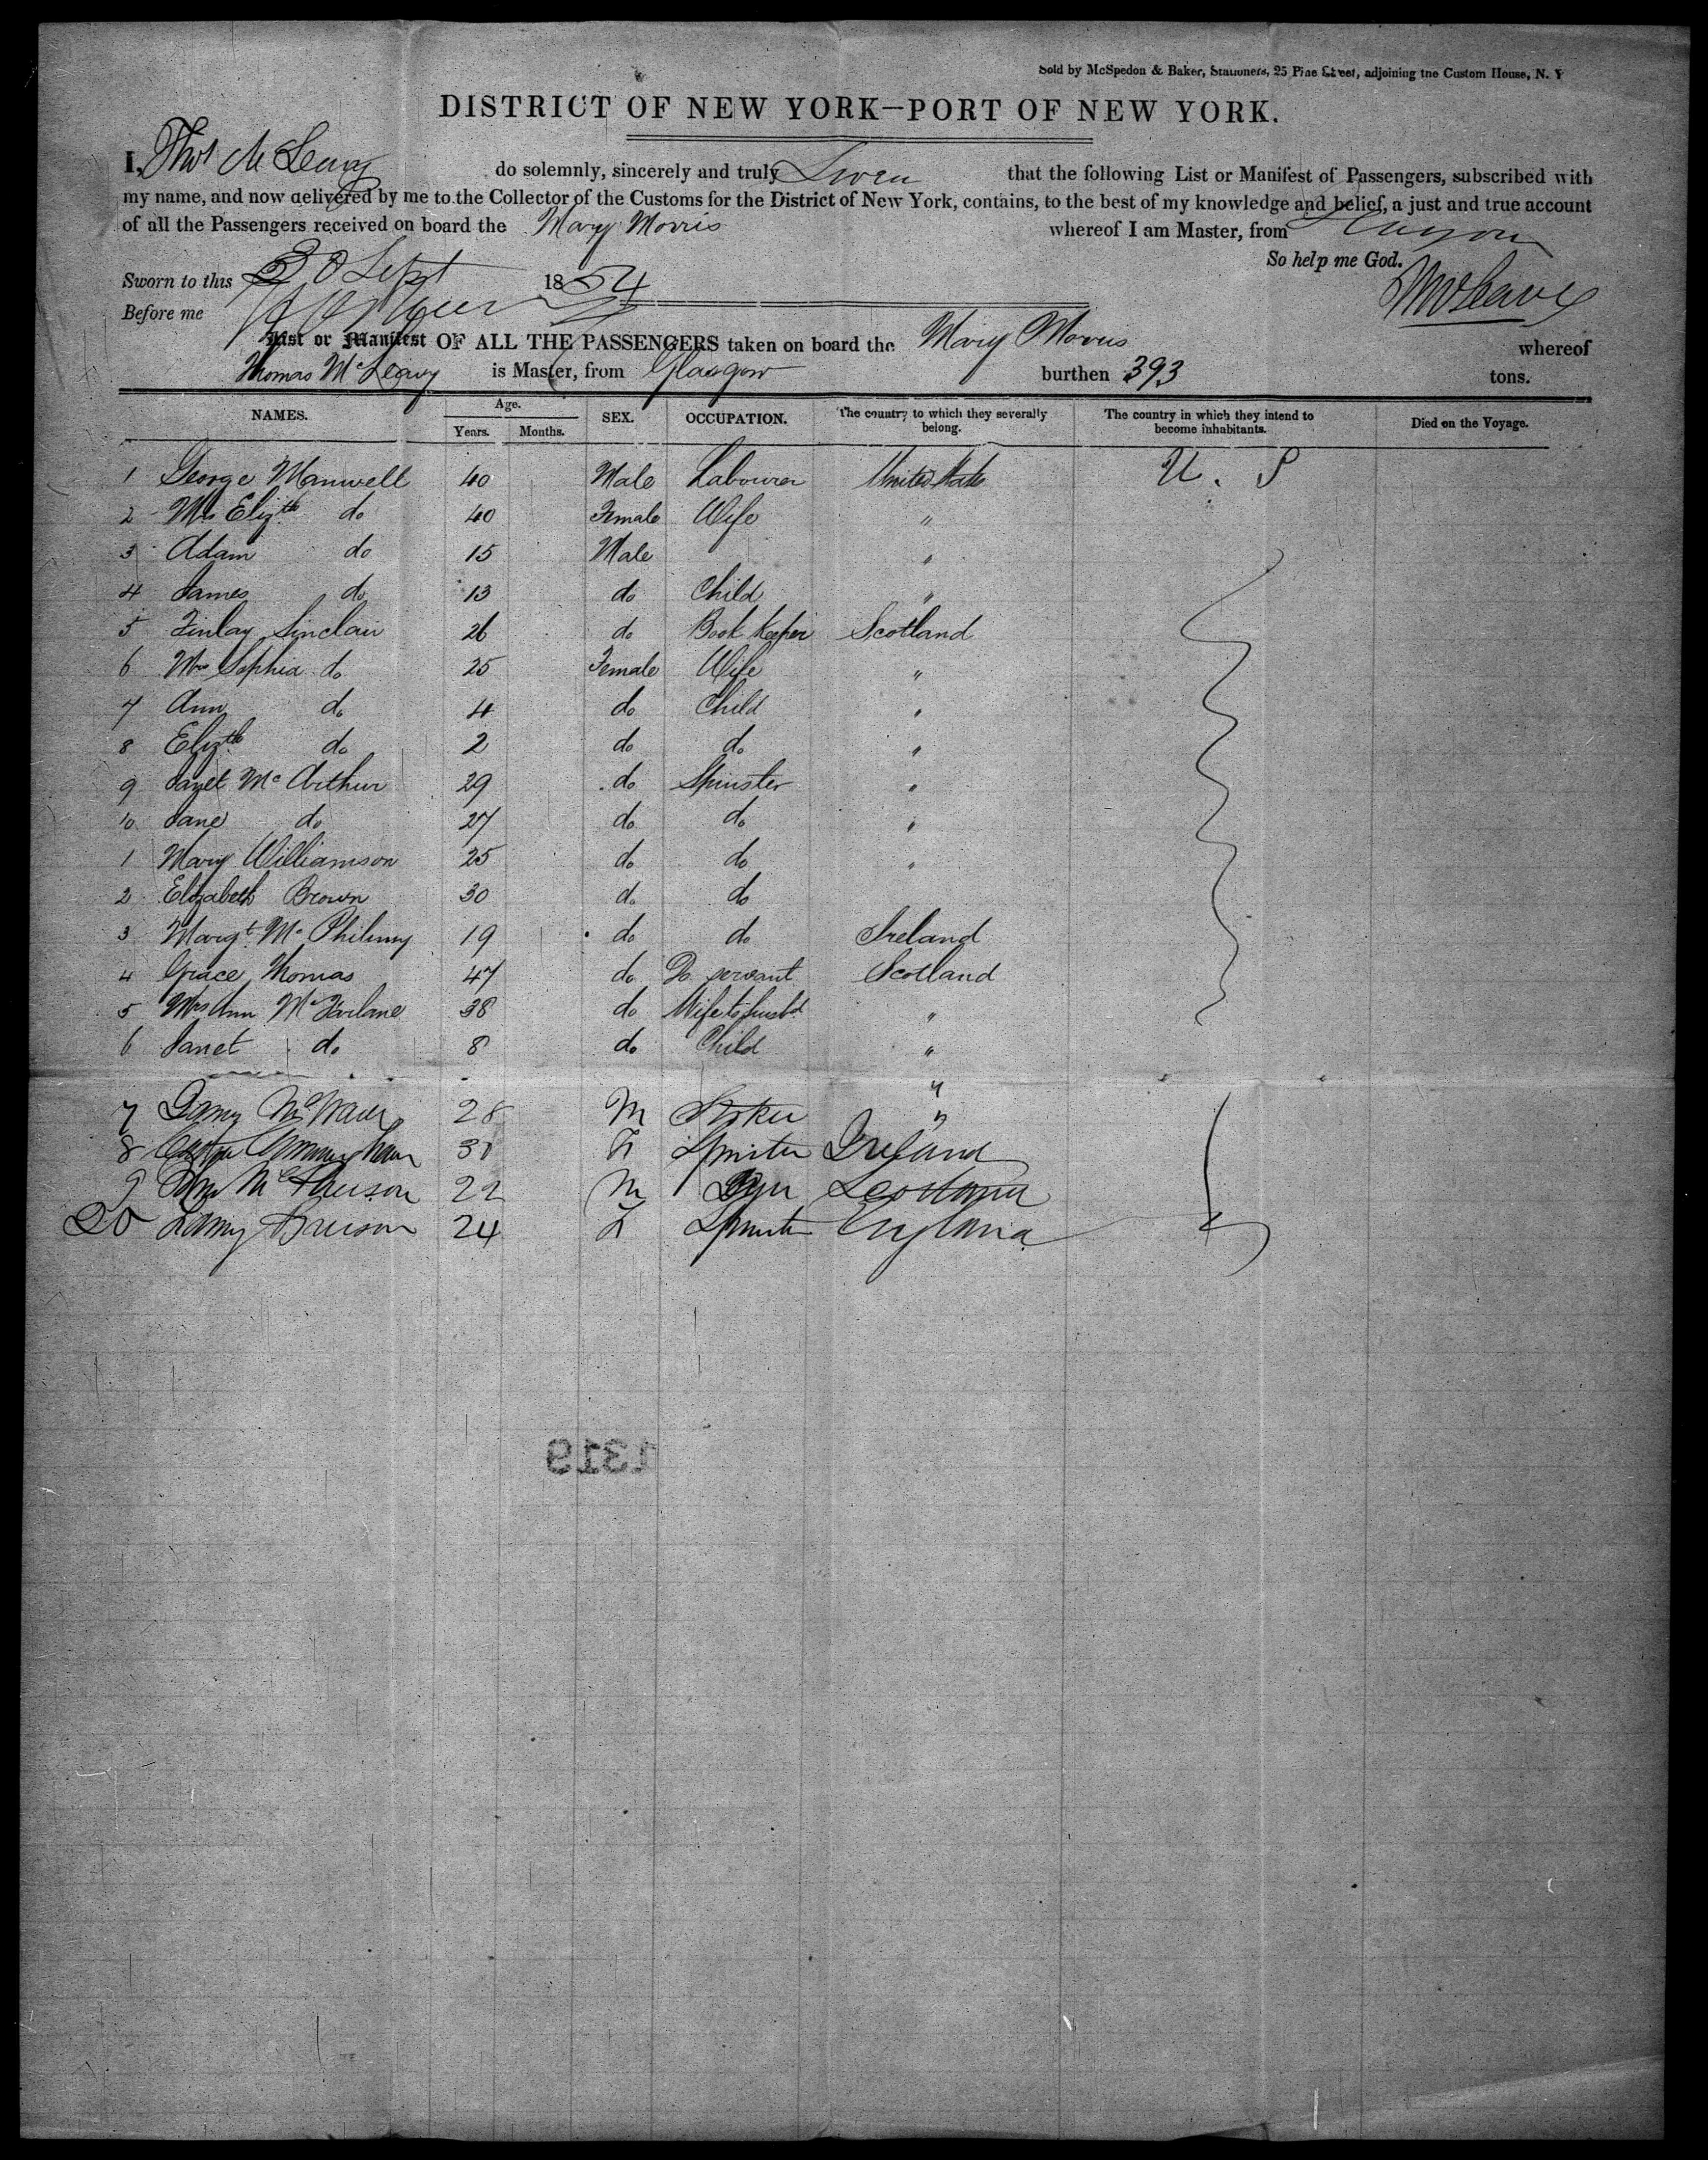 Sold by McSpedon & Baker, Stationers, 25 Pine Street, adjoining the Custom House, N. Y
DISTRICT OF NEW YORK—PORT OF NEW YORK.
I, Thos McLeavy do solemnly, sincerely and truly Swear that the following List or Manifest of Passengers, subscribed with
my name, and now delivered by me to the Collector of the Customs for the District of New York, contains, to the best of my knowledge and belief, a just and true account
of all the Passengers received on board the Mary Morris whereof I am Master, from Glasgow
So help me God.
Sworn to this 30 Sept 1854
Before me
List or Manifest OF ALL THE PASSENGERS taken on board the Mary Morris whereof
Thomas McLeavy is Master, from Glasgow burthen 393 tons.
NAMES. Age. Years. Months. SEX. OCCUPATION. The country to which they severally belong. The country in which they intend to become inhabitants. Died on the Voyage.
1 George Manwell 40 Male Labourer United States U. S
2 Mrs Elizth do 40 Female Wife "
3 Adam do 15 Male "
4 James do 13 do Child "
5 Finlay Sinclair 26 do Book Keeper Scotland
6 Mrs Sophia do 25 Female Wife "
7 Ann do 4 do Child "
8 Elizth do 2 do do "
9 Janet McArthur 29 do Spinster "
10 Jane do 27 do do "
1 Mary Williamson 25 do do "
2 Elizabeth Brown 30 do do
3 Margt. Mc Philimy 19 do do Ireland
4 Grace Thomas 47 do Do servant Scotland
5 Mrs Ann McFarlane 38 do Wife to husbd "
6 Janet do 8 do Child "
"
7 28 M "
8 31 F Spinster Ireland
9 22 M Scotland
20 24 F Spinster England
1319